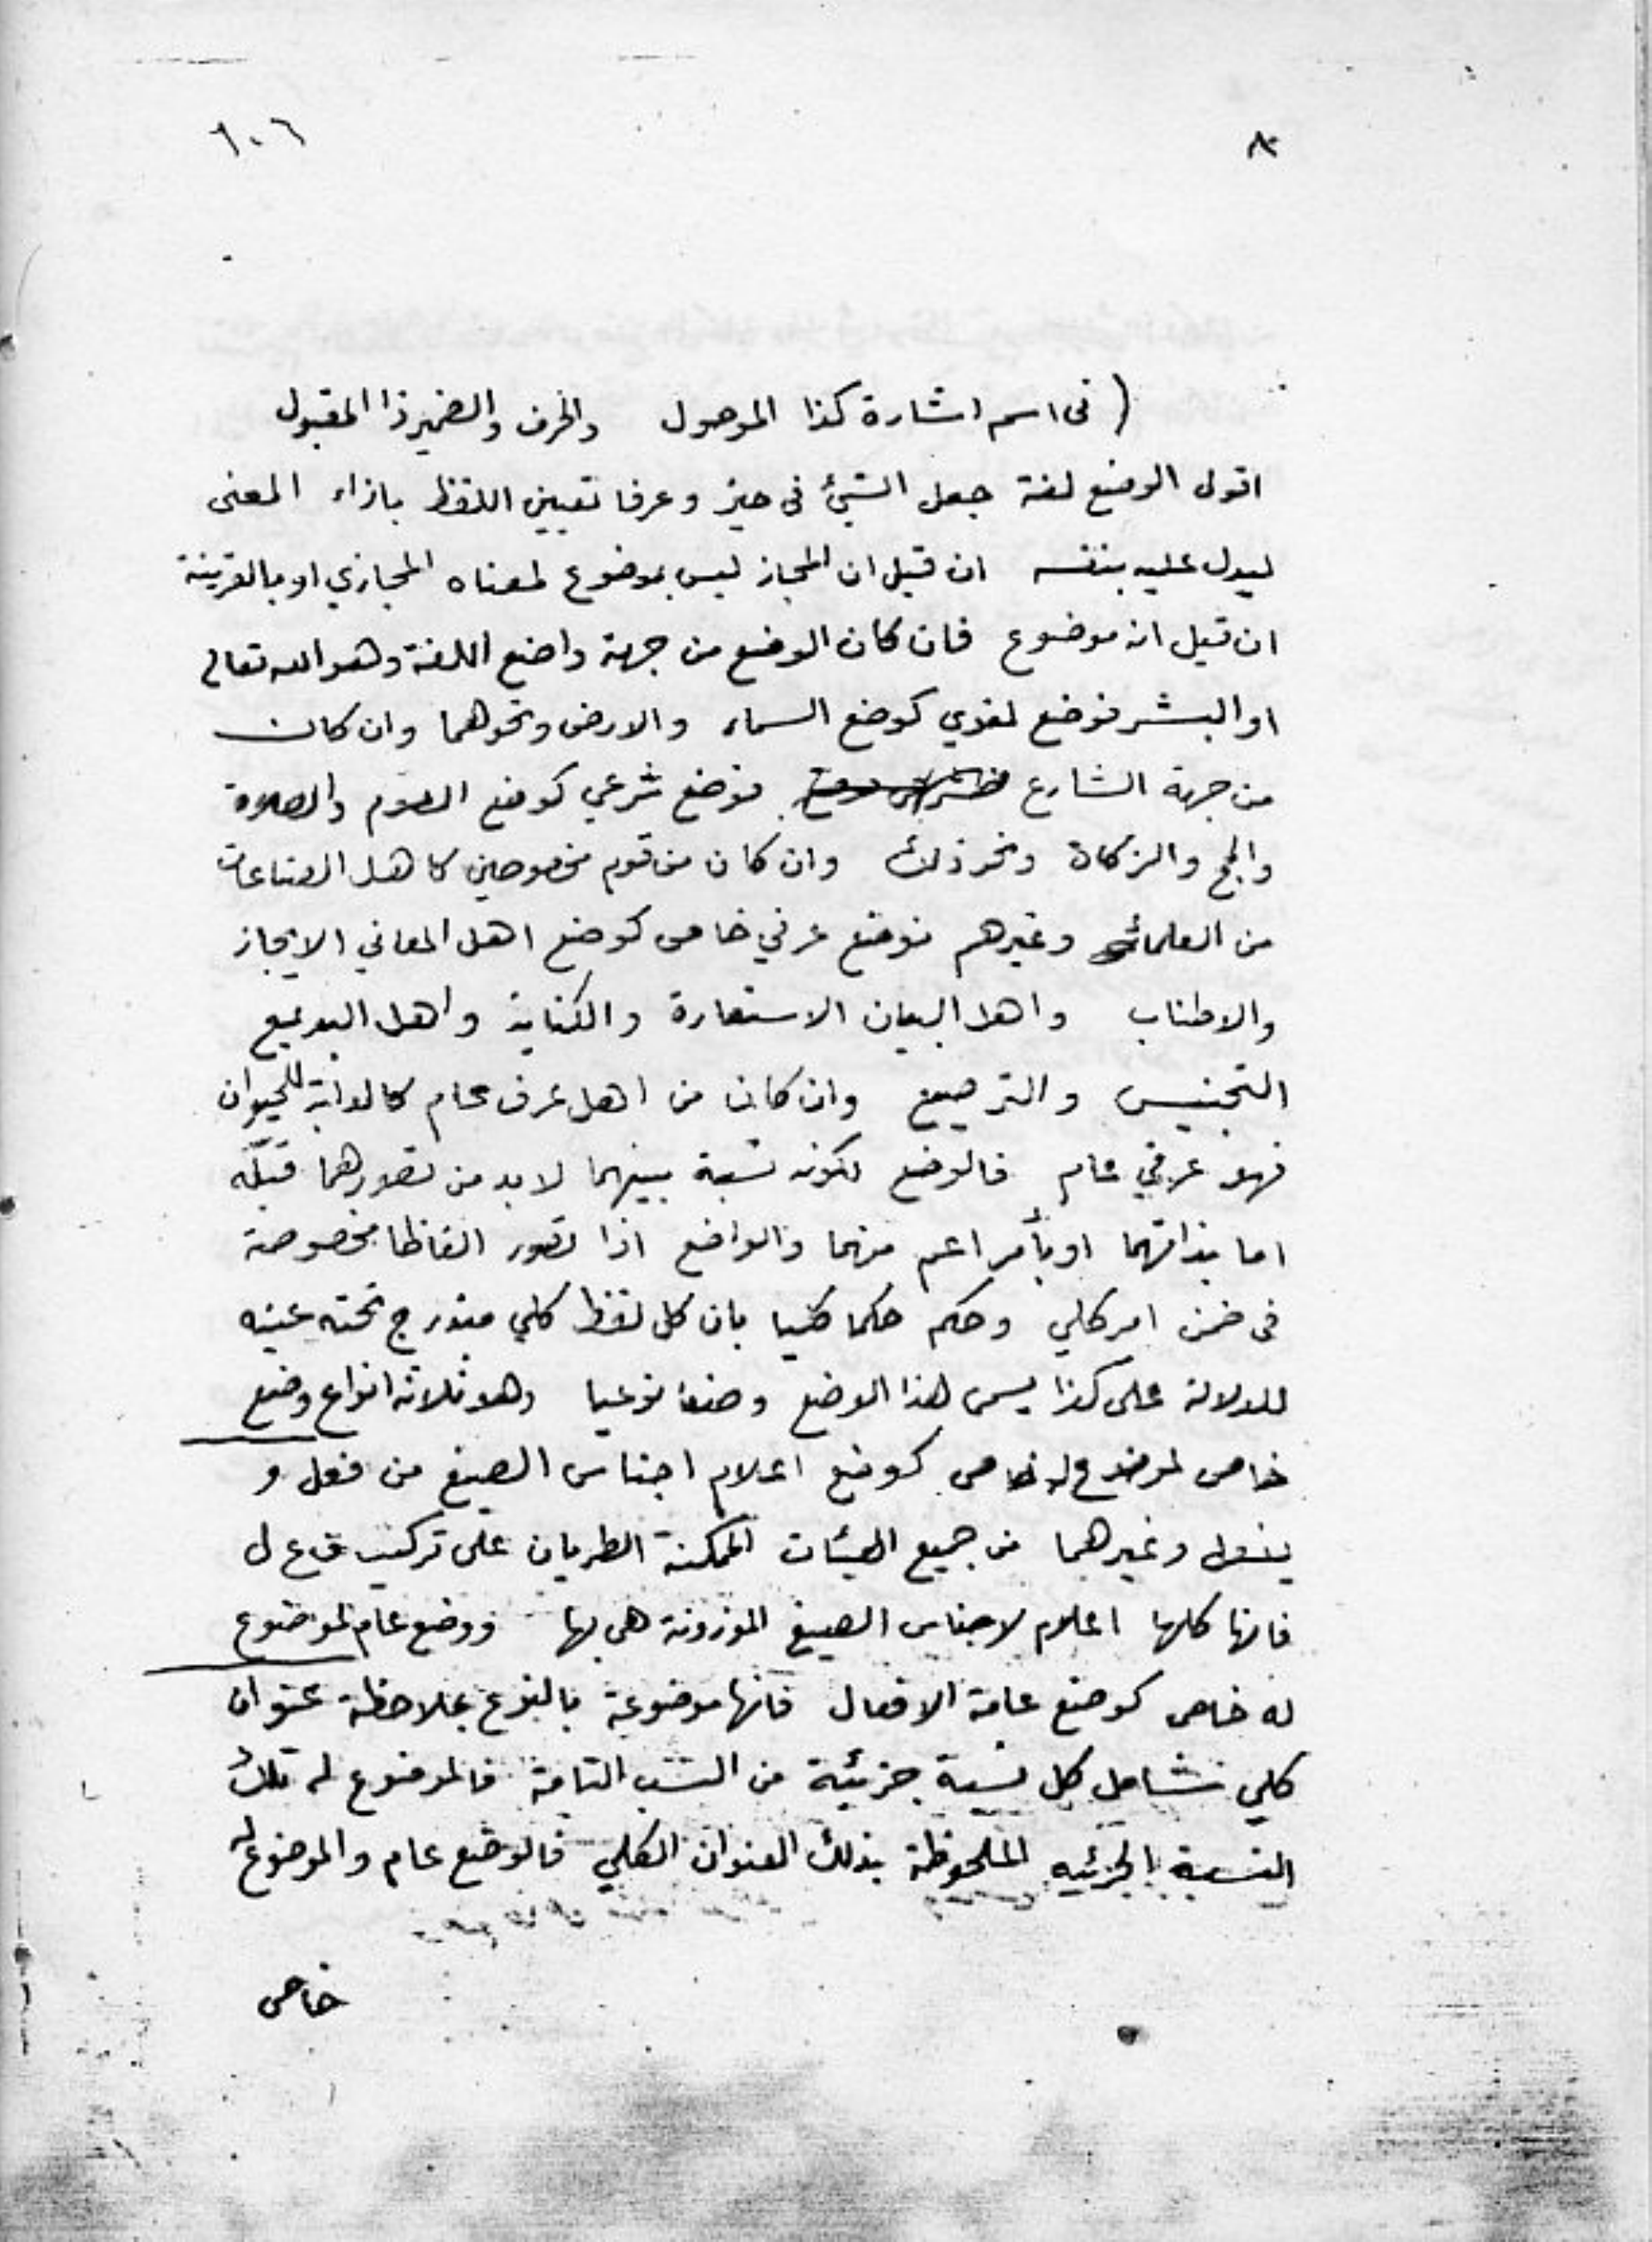 ٨
٦٠٦
( فى اسم اشارة كذا الموصول والحرف والضمير ذا المقبول
اقول الوضع لغة جعل الشيئ فى حيز وعرفا تعيين اللفظ بازاء المعنى
ليدل عليه بنفسه ان قيل ان المجاز ليس بموضوع لمعناه المجازي او بالقرينة
ان قيل انه موضوع فان كان الوضع من جهة واضع اللغة وهو الله تعالى
او البشر فوضع لغوي كوضع السماء والارض ونحوهما وان كان
من جهة الشارع فوضع شرعي كوضع الصوم والصلاة
والحج والزكاة ونحو ذلك وان كان من قوم مخصوصين كاهل الصناعات
من العلماء وغيرهم فوضع عرفي خاص كوضع اهل المعاني الايجاز
والاطناب واهل البيان الاستعارة والكناية واهل البديع
التجنيس والترصيع وان كان من اهل عرف عام كالدابة للحيوان
فهو عرفي عام فالوضع لكونه نسبة بينهما لا بد من تصورهما قبله
اما بذاتهما او بأمر اعم منهما والواضع اذا تصور الفاظا مخصوصة
فى ضمن امر كلي وحكم حكما كليا بان كل لفظ كلي مندرج تحته عينه
للدلالة على كذا يسمى هذا الوضع وضعا نوعيا وهو ثلاثة انواع وضع
خاص لموضوع له خاص كوضع اعلام اجناس الصيغ من فعل و
يفعل وغيرهما من جميع الهيئات الممكنة الطريان على تركيب ف ع ل
فانها كلها اعلام لاجناس الصيغ الموزونة هى بها ووضع عام لموضوع
له خاص كوضع عامة الافعال فانها موضوعة بالنوع بملاحظة عنوان
كلي شامل كل نسبة جزئية من النسب التامة فالموضوع له تلك
النسبة الجزئيه الملحوظة بذلك العنوان الكلي فالوضع عام والموضوع له
خاص